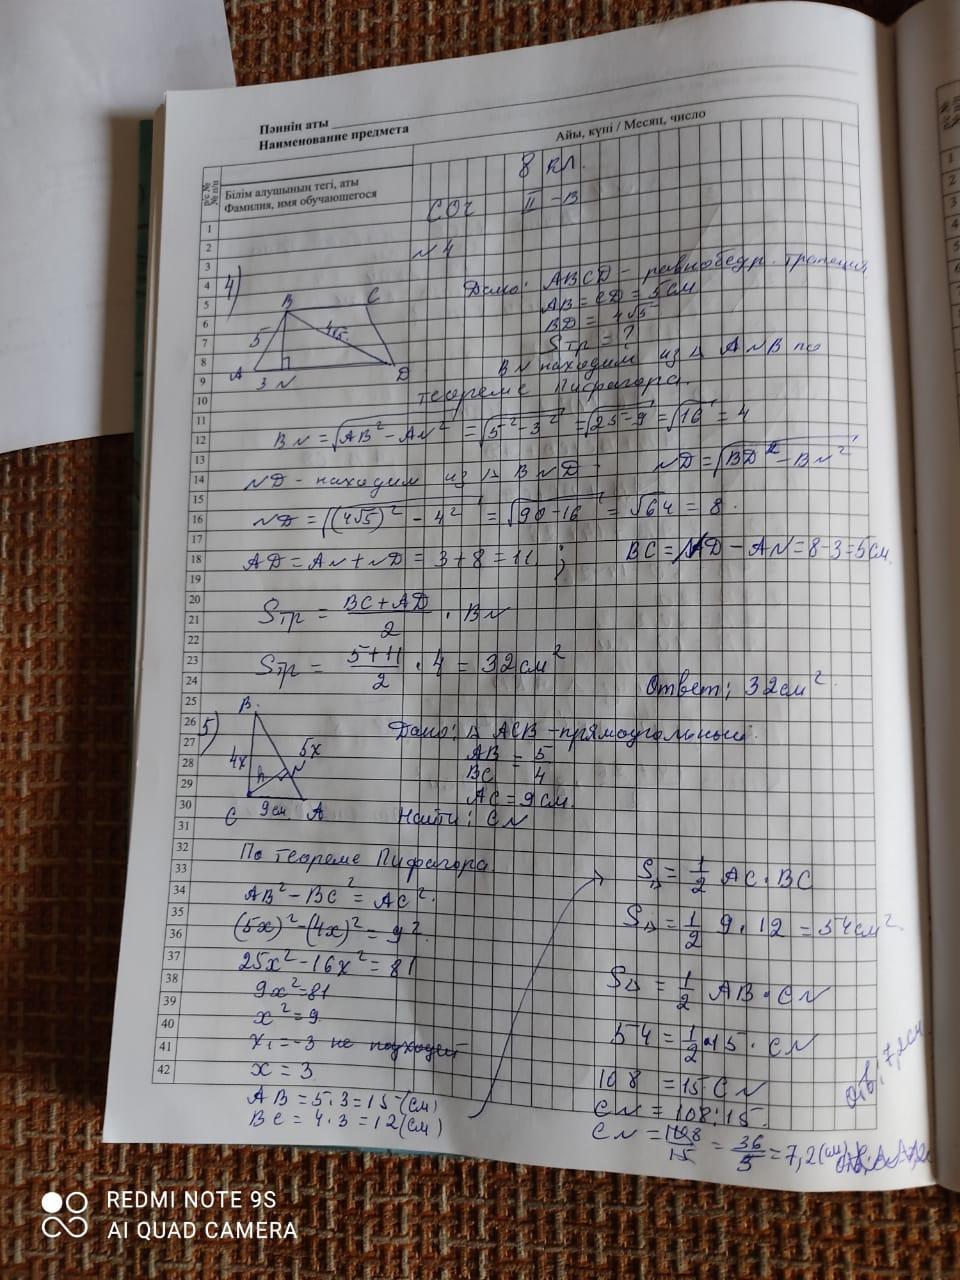 Пәннің аты
Наименование предмета
Айы, күні / Месяц, число
р/с №
№ п/п
Білім алушының тегі, аты
Фамилия, имя обучающегося
8 кл.
СОч II - В
N 4
1
2
3
4
5
6
7
8
9
10
11
12
13
14
15
16
17
18
19
20
21
22
23
24
25
26
27
28
29
30
31
32
33
34
35
36
37
38
39
40
41
42
4)
B C
5 4√5
A 3 N D
Дано: ABCD - равнобедр. трапеция
AB = CD = 5 см
BD = 4√5
Sтр = ?
BN находим из △ ANB по
теореме Пифагора.
BN = √AB² - AN² = √5² - 3² = √25 - 9 = √16 = 4
ND - находим из △ BND. ND = √BD² - BN²
ND = √(4√5)² - 4² = √90 - 16 = √64 = 8.
AD = AN + ND = 3 + 8 = 11 ; BC = ND - AN = 8 - 3 = 5 см.
Sтр = BC + AD / 2 · BN
Sтр = 5 + 11 / 2 · 4 = 32 см²
Ответ; 32 см².
5)
B.
4x 5x
h N
C 9 см A
Дано: △ ACB - прямоугольный.
AB / BC = 5 / 4
AC = 9 см.
Найти: CN
По теореме Пифагора.
AB² - BC² = AC².
(5x)² - (4x)² = 9².
25x² - 16x² = 81
9x² = 81
x² = 9
x₁ = -3 не подходит
x = 3
AB = 5·3 = 15 (см)
BC = 4·3 = 12 (см)
S△ = 1/2 AC · BC
S△ = 1/2 9 · 12 = 54 см².
S△ = 1/2 AB · CN
54 = 1/2 · 15 · CN
108 = 15 CN
CN = 108 : 15.
CN = 108/15 = 36/5 = 7,2 (см)
отв; 7,2 см.
REDMI NOTE 9S
AI QUAD CAMERA